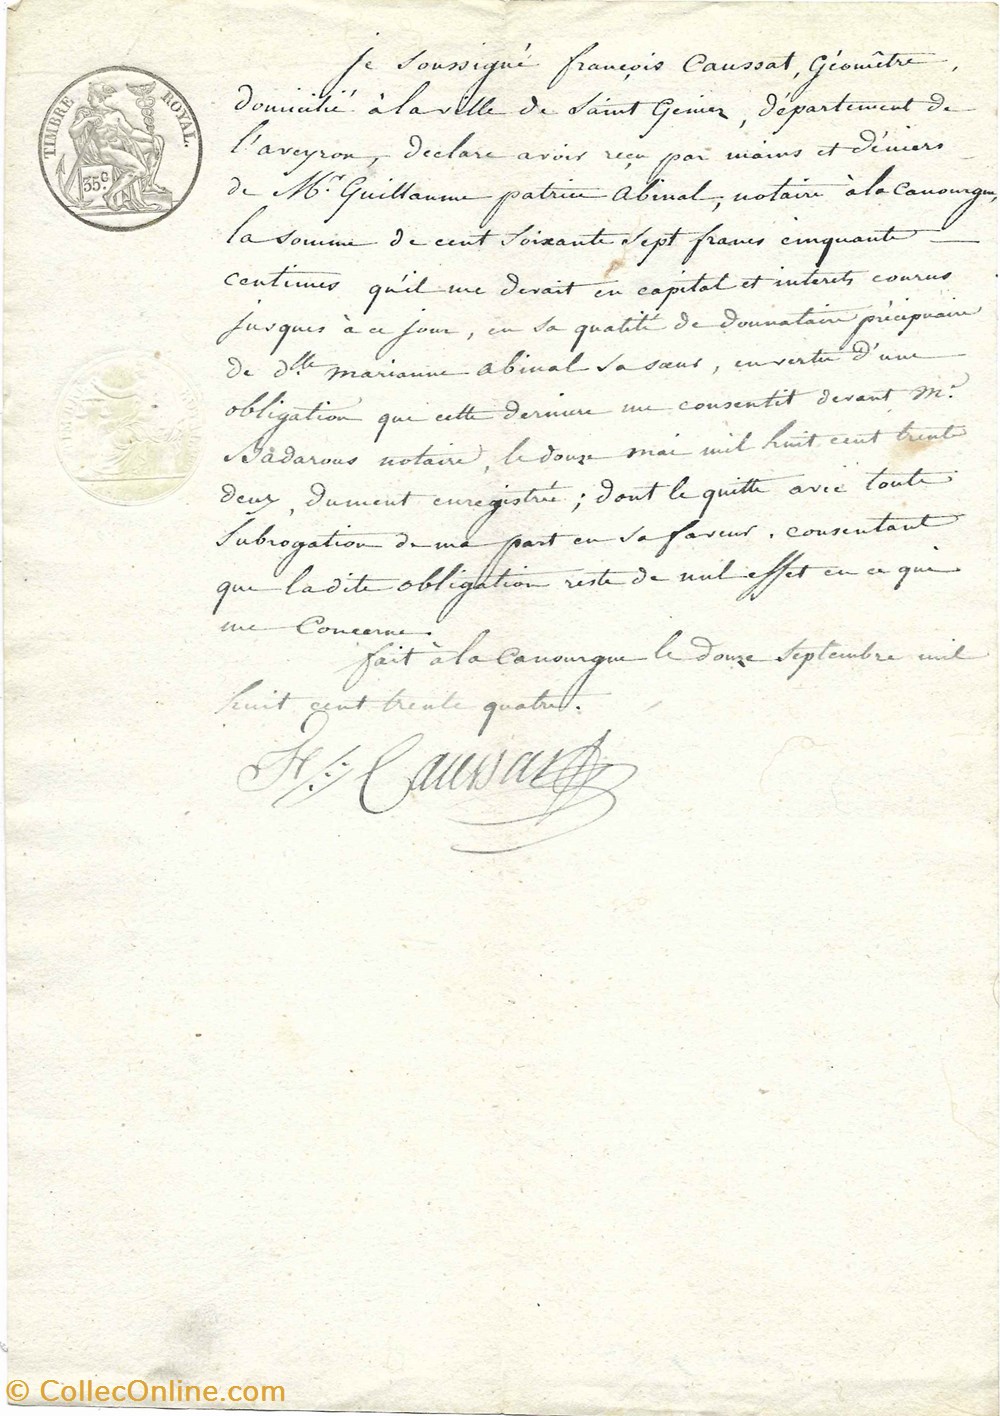 TIMBRE ROYAL.
35 c
je soussigné françois Caussat, Géomêtre,
domicilié à la ville de Saint Geniez, département de
l'aveyron, declare avoir reçu par mains et déniers
de Mr. Guillaume patrice abinal, notaire à la Canourgue,
la somme de cent soixante sept francs cinquante
centimes qu'il me devait en capital et interets courus
jusques à ce jour, en sa qualité de donnataire précipuaire
de dlle marianne abinal sa sœur, en vertu d'une
obligation que cette derniere me consentit devant Mr.
Badarous notaire, le douze mai mil huit cent trente
deux, dument enregistrée; dont le quitte avec toute
Subrogation de ma part en sa faveur. consentant
que ladite obligation reste de nul effet en ce qui
me Concerne.
fait à la Canourgue le douze septembre mil
huit cent trente quatre.
Caussat
© CollecOnline.com